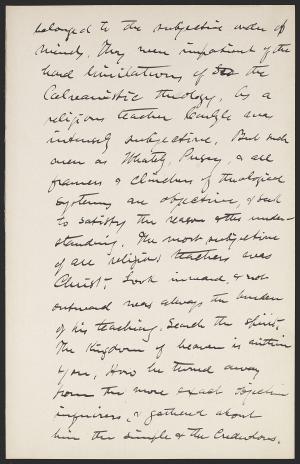 belonged to the subjective order of
minds. They were impatient of the
hard limitations of the
Calvanistic theology. As a
religious teacher Carlyle was
intensely subjective. But such
men as Whately, Pusey, & all
framers & climbers of theological
systems are objective, & seek
to satisfy the reason & the under-
standing. The most subjective
of all religious teachers was
Christ; Look inward, & not
outward was always the burden
of his teaching. Seach the spirit,
The Kingdom of heaven is within
you. How he turned away
from the more exact objective
inquirers, & gathered about
him the simple & the credulous.